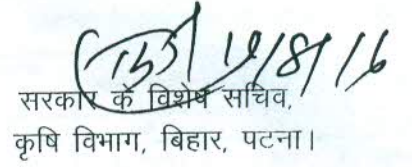 19/8/16
सरकार के विशेष सचिव,
कृषि विभाग, बिहार, पटना।